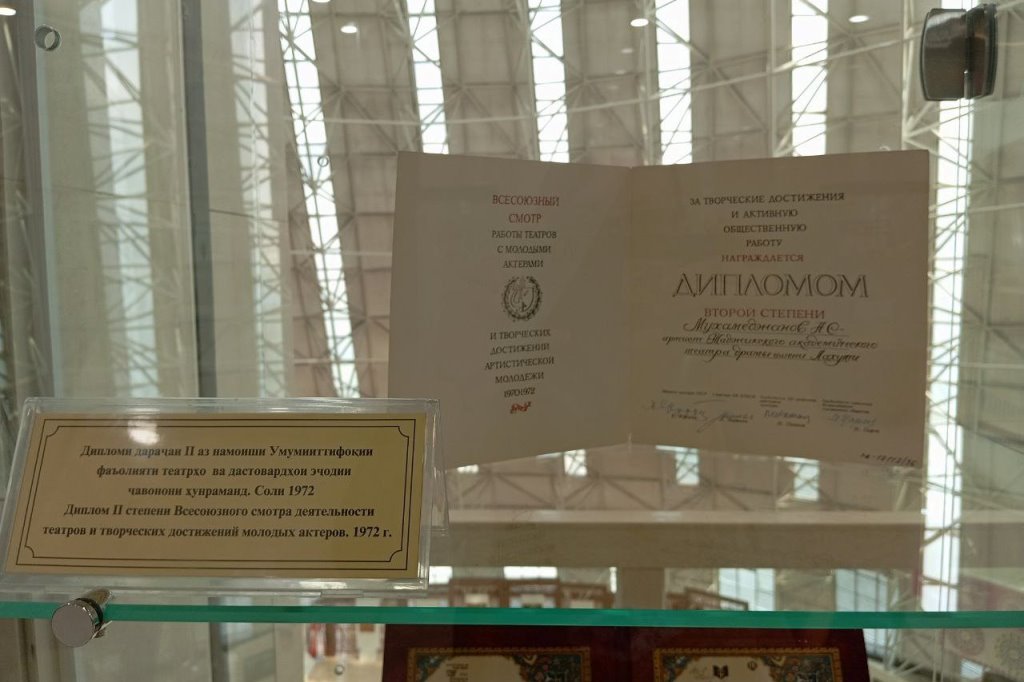 ВСЕСОЮЗНЫЙ
СМОТР
РАБОТЫ ТЕАТРОВ
С МОЛОДЫМИ
АКТЕРАМИ
И ТВОРЧЕСКИХ
ДОСТИЖЕНИЙ
АРТИСТИЧЕСКОЙ
МОЛОДЕЖИ
1970-1972
ЗА ТВОРЧЕСКИЕ ДОСТИЖЕНИЯ
И АКТИВНУЮ
ОБЩЕСТВЕННУЮ
РАБОТУ
НАГРАЖДАЕТСЯ
ДИПЛОМОМ
ВТОРОЙ СТЕПЕНИ
Мухамеджанов А С-
артист Таджикского академического
театра драмы имени Лахути
Дипломи дараҷаи II аз намоиши Умумииттифоқии
фаъолияти театрҳо ва дастовардҳои эҷодии
ҷавонони ҳунраманд. Соли 1972
Диплом II степени Всесоюзного смотра деятельности
театров и творческих достижений молодых актеров. 1972 г.